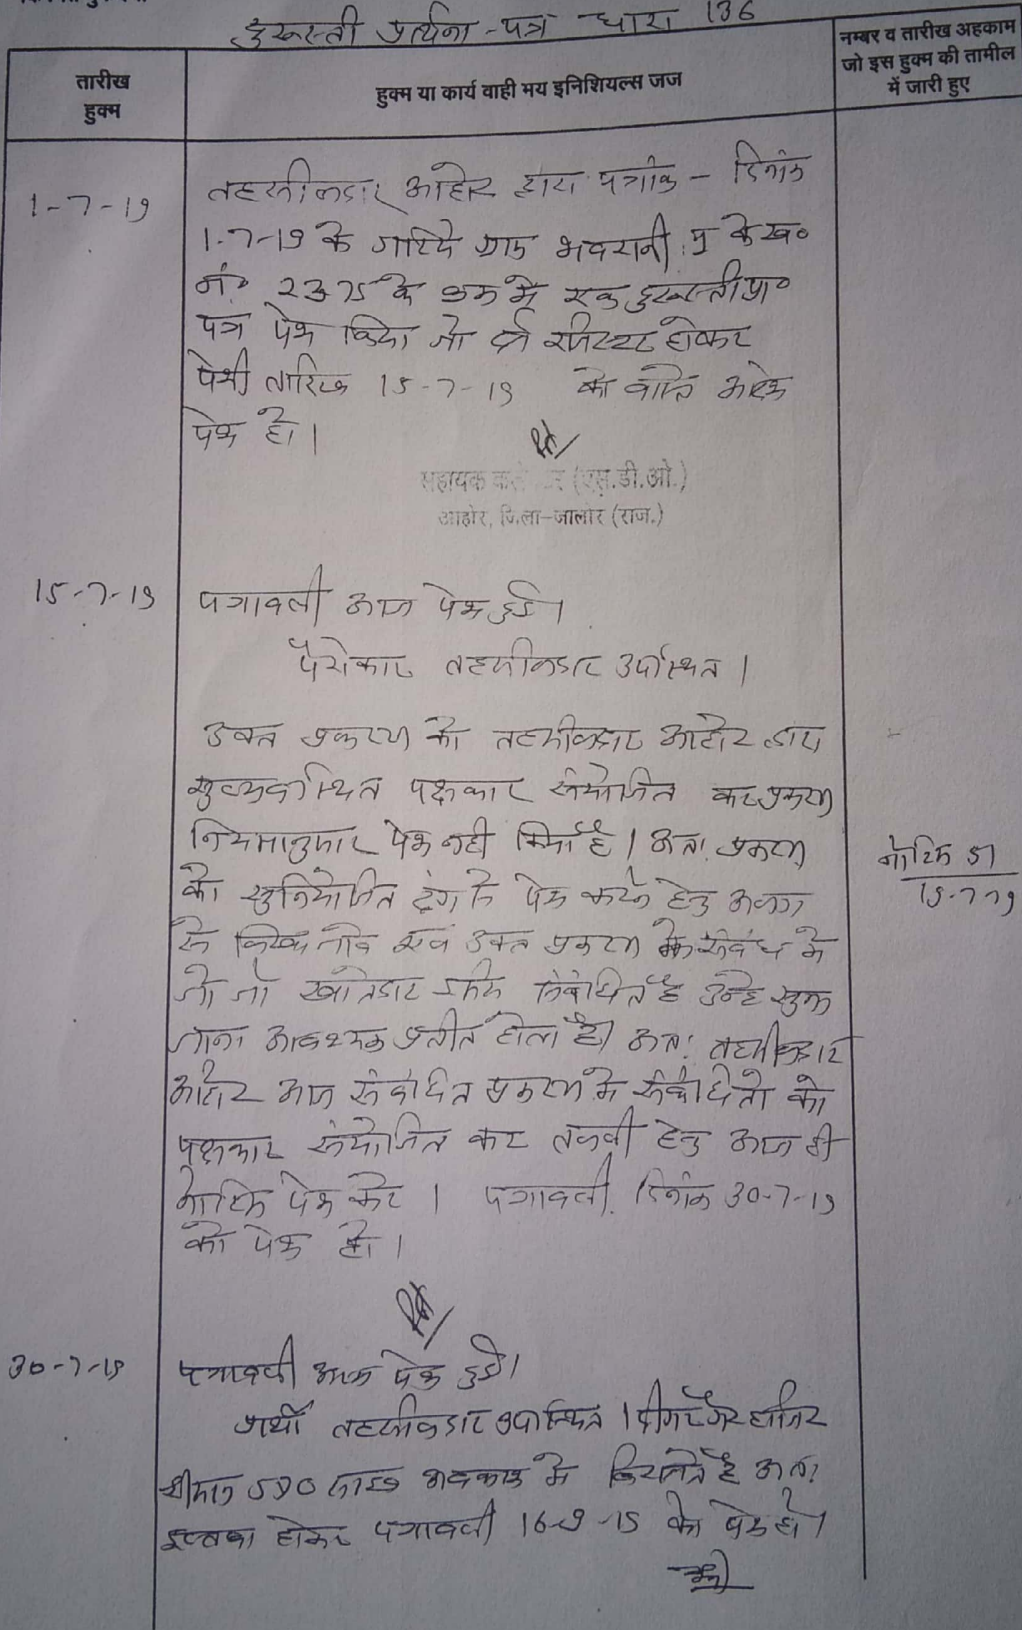 दुरूस्ती प्रार्थना-पत्र धारा 136
तारीख हुक्म
हुक्म या कार्य वाही मय इनिशियल्स जज
नम्बर व तारीख अहकाम
जो इस हुक्म की तामील
में जारी हुए
1-7-19
तहसीलदार आहोर द्वारा पत्रांक - दिनांक
1-7-19 के जरिये ग्राम भवरानी के ख०
नं० 2375 के क्रम में एक दुरूस्ती प्रा०
पत्र पेश किया जो दर्ज रजिस्टर होकर
पेशी तारिख 15-7-19 को वास्ते
पेश हो।
सहायक कलेक्टर (एस.डी.ओ.)
आहोर, जिला-जालोर (राज.)
15-7-19
पत्रावली आज पेश हुई।
पैरोकार तहसीलदार उपस्थित।
उक्त प्रकरण को तहसीलदार आहोर द्वारा
सुव्यवस्थित पक्षकार संयोजित कर प्रकरण
नियमानुसार पेश नही किया है। अतः प्रकरण
को सुनियोजित ढंग से पेश करने हेतु
एवं उक्त प्रकरण के संबंध में
जो जो खातेदार संबंधित है उन्हे सुना
जाना आवश्यक प्रतीत होता है। अतः तहसीलदार
आहोर आज संबंधित प्रकरण में संबंधितो को
पक्षकार संयोजित कर तलबी हेतु आज ही
नोटिस पेश करे। पत्रावली दिनांक 30-7-19
को पेश हो।
नोटिस जा
15-7-19
30-7-19
पत्रावली आज पेश हुई।
प्रार्थी तहसीलदार उपस्थित। दीगर गैर हाजिर
श्रीमान SDO साहब अवकाश में है अतः
होकर पत्रावली को पेश हो।